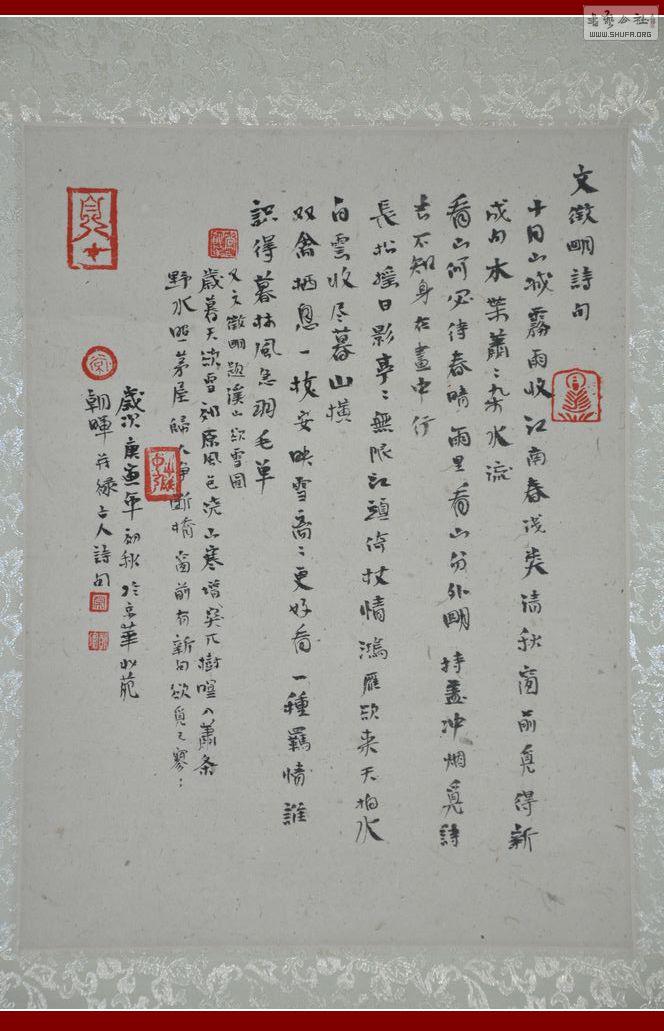 文徵明詩句
十日山城霧雨收江南春浅类清秋窗前覓得新
成句木葉蕭〻九水流
看山何必待春晴雨里看山分外明持盖冲烟覓詩
去不知身在畫中行
長松搖日影亭〻無限江頭倚杖情鴻雁欲来天拍水
白雲收尽暮山橫
双禽栖息一枝安映雪高〻更好看一種羈情誰
識得暮林風急羽毛单
又文徵明題溪山欲雪圖
歲暮天欲雪郊原風色澆山寒增突兀樹暝入蕭条
野水照茅屋歸人争断橋窗前有新句欲覓已寥〻
歲次庚寅年初秋於京華
朝暉并録古人詩句
書藝公社
WWW.SHUFA.ORG